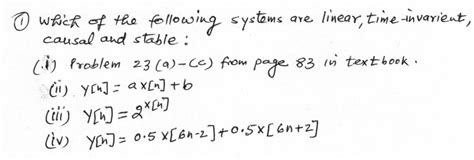 ① Which of the following systems are linear, time-invarient,
causal and stable:
(i) Problem 23 (a)-(c) from page 83 in textbook.
(ii) y[n] = ax[n] + b
(iii) y[n] = 2^x[n]
(iv) y[n] = 0.5 x[6n-2] + 0.5 x[6n+2]